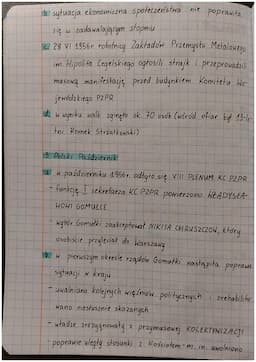 b. sytuacja ekonomiczna społeczeństwa nie poprawiła
się w zadowalającym stopniu
c. 28 VI 1956r. robotnicy Zakładów Przemysłu Metalowego
im. Hipolita Cegielskiego ogłosili strajk i przeprowadzili
masową manifestację przed budynkiem Komitetu Wo-
jewódzkiego PZPR
d. w wyniku walk zginęło ok. 70 osób (wśród ofiar był 13-le-
tni Romek Strzałkowski)
3. Polski Październik
a. w październiku 1956r. odbyło się VIII PLENUM KC PZPR
- funkcję I sekretarza KC PZPR powierzono WŁADYSŁA-
WOWI GOMUŁCE
- wybór Gomułki zaakceptował NIKITA CHRUSZCZOW, który
osobiście przyleciał do Warszawy
b. w pierwszym okresie rządów Gomułki nastąpiła poprawa
sytuacji w kraju
- uwalniano kolejnych więźniów politycznych i zrehabilito-
wano niesłusznie skazanych
- władze zrezygnowały z przymusowej KOLEKTYWIZACJI
- poprawie uległy stosunki z Kościołem - m. in. uwolniono